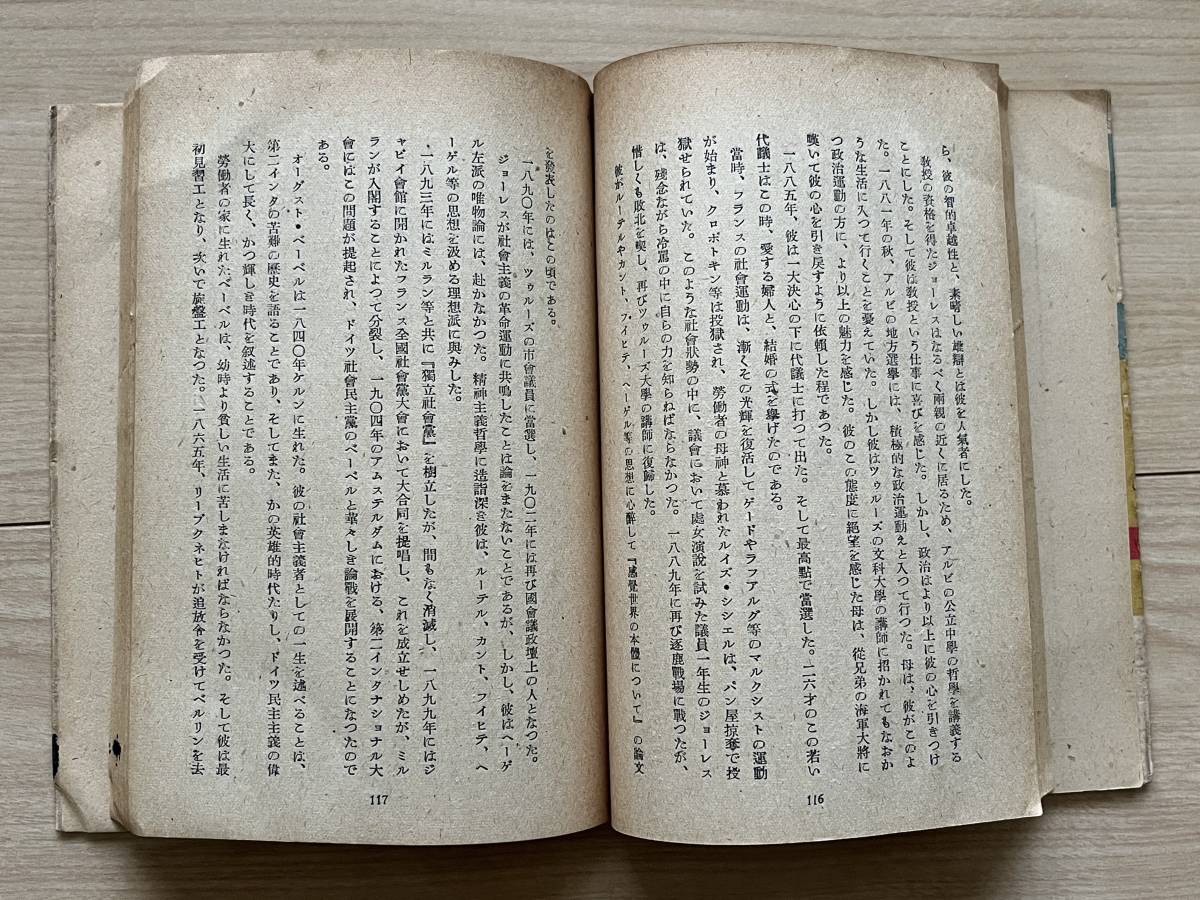 ら、彼の智的卓越性と、素晴しい雄辯とは彼を人氣者にした。
教授の資格を得たジョーレスはなるべく兩親の近くに居るため、アルビの公立中學の哲學を講義する
ことにした。そして彼は教授という仕事に喜びを感じた。しかし、政治はより以上に彼の心を引きつけ
た。一八八一年の秋、アルビの地方選擧には、積極的な政治運動え入つて行つた。母は、彼がこのよ
うな生活に入つて行くことを憂えていた。しかし彼はツゥルーズの文科大學の講師に招かれてもなおか
つ政治運動の方に、より以上の魅力を感じた。彼のこの態度に絶望を感じた母は、從兄弟の海軍大將に
嘆いて彼の心を引き戻すように依頼した程であつた。
一八八五年、彼は一大決心の下に代議士に打つて出た。そして最高點で當選した。二六才のこの若い
代議士はこの時、愛する婦人と、結婚の式を擧げたのである。
當時、フランスの社會運動は、漸くその光輝を復活してゲードやラフアルグ等のマルクシストの運動
が始まり、クロポトキン等は投獄され、勞働者の母神と慕われたルイズ・シシエルは、パン屋掠奪で投
獄せられていた。このような社會狀勢の中に、議會において處女演說を試みた議員一年生のジョーレス
は、殘念ながら冷罵の中に自らの力を知らねばならなかつた。一八八九年に再び逐鹿戰場に戰つたが、
惜しくも敗北を喫し、再びツゥルーズ大學の講師に復歸した。
彼がルーテルやカント、フイヒテ、ヘーゲル等の思想に心醉して『感覺世界の本體について』の論文
116
を發表したのはこの頃である。
一八九〇年には、ツゥルーズの市會議員に當選し、一九〇二年には再び國會議政壇上の人となつた。
ジョーレスが社會主義の革命運動に共鳴したことは論をまたないことであるが、しかし、彼はヘーゲ
ル左派の唯物論には、赴かなかつた。精神主義哲學に造詣深き彼は、ルーテル、カント、フイヒテ、ヘ
ーゲル等の思想を汲める理想派に與みした。
一八九三年にはミルラン等と共に『獨立社會黨』を樹立したが、間もなく消滅し、一八九九年にはジ
ャピイ會館に開かれたフランス全國社會黨大會において大合同を提唱し、これを成立せしめたが、ミル
ランが入閣することによつて分裂し、一九〇四年のアムステルダムにおける、第二インタナショナル大
會にはこの問題が提起され、ドイツ社會民主黨のベーベルと華々しき論戰を展開することになつたので
ある。
オーグスト・ベーベルは一八四〇年ケルンに生れた。彼の社會主義者としての一生を述べることは、
第二インタの苦難の歷史を語ることであり、そしてまた、かの英雄的時代たりし、ドイツ民主主義の偉
大にして長く、かつ輝しき時代を叙述することである。
勞働者の家に生れたベーベルは、幼時より貧しい生活に苦しまなければならなかつた。そして彼は最
初見習工となり、次いで旋盤工となつた。一八六五年、リープクネヒトが追放令を受けてベルリンを去
117